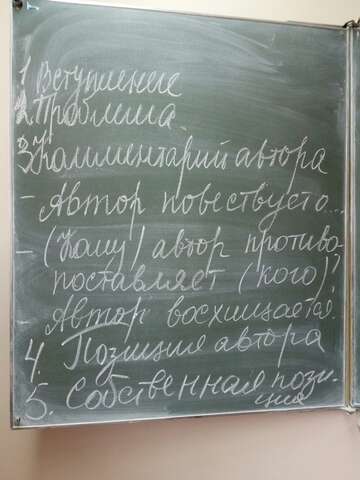 1. Вступление
2. Проблема.
3. Комментарий автора
- Автор повествует о...
- (Кому) автор противо-
поставляет (кого)?
Автор восхищается.
4. Позиция автора
5. Собственная пози-
ция